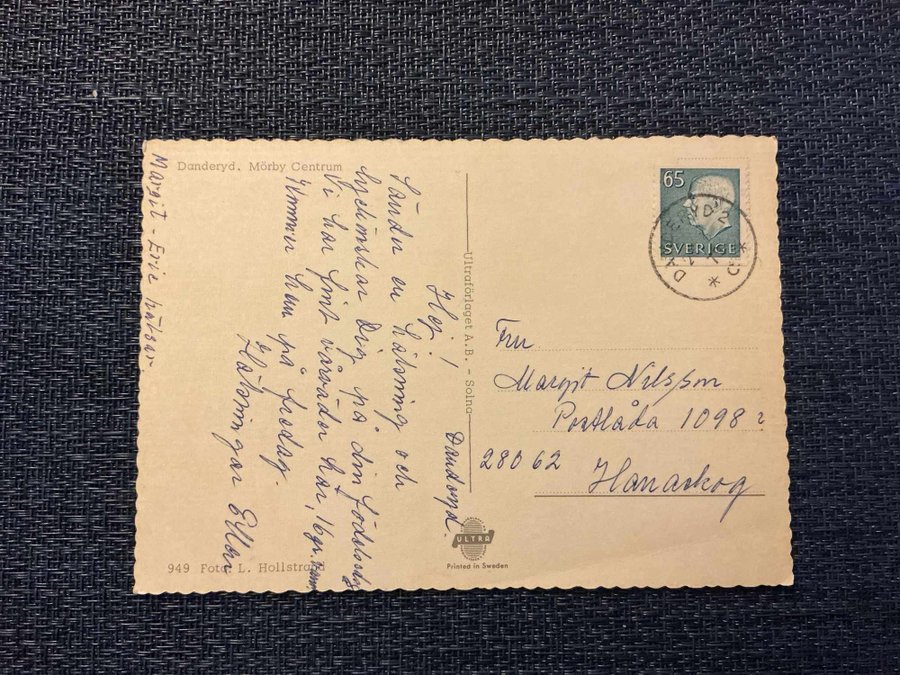 Danderyd. Mörby Centrum
Hej! Danderyd.
Sänder en hälsning och
lyckönskar Dig på din födelsedag
Vi har fint vårväder här, 16 gr. varm
Kommer hem på fredag.
Hälsningar Ellen
Margit - Eric hälsar.
949 Foto: L. Hollstrand
Ultraförlaget A.B. - Solna
ULTRA
Printed in Sweden
65
SVERIGE
DANDERYD
Fru
Margit Nilsson
Postlåda 1098
28062 Hanaskog